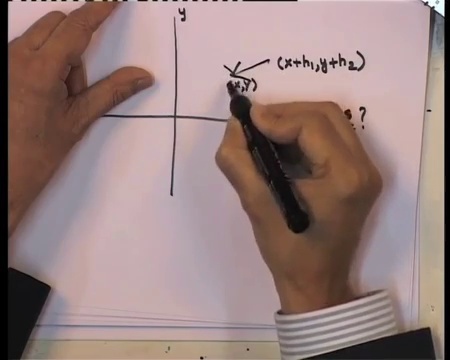 y
(x+h₁, y+h₂)
(x,y)
?